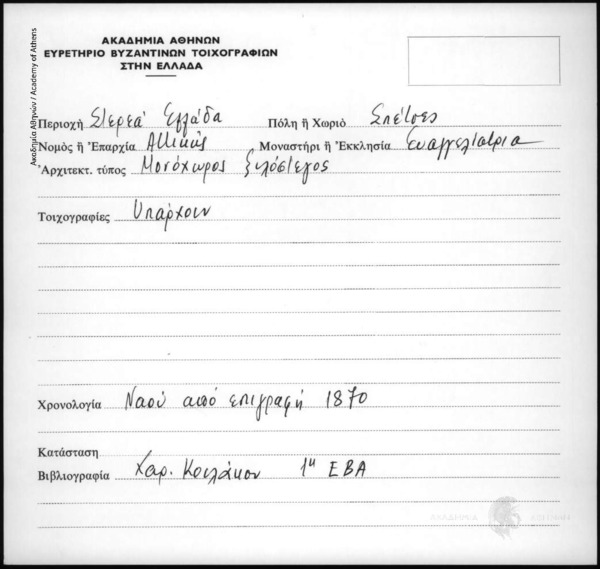 ΑΚΑΔΗΜΙΑ ΑΘΗΝΩΝ
ΕΥΡΕΤΗΡΙΟ ΒΥΖΑΝΤΙΝΩΝ ΤΟΙΧΟΓΡΑΦΙΩΝ
ΣΤΗΝ ΕΛΛΑΔΑ
Ακαδημία Αθηνών / Academy of Athens
Περιοχὴ Στερεά Ελλάδα Πόλη ἢ Χωριὸ Σπέτσες
Νομὸς ἢ Ἐπαρχία Αττικής Μοναστήρι ἢ Ἐκκλησία Ευαγγελίστρια
Ἀρχιτεκτ. τύπος Μονόχωρος ξυλόστεγος
Τοιχογραφίες Υπάρχουν
Χρονολογία Ναού από επιγραφή 1870
Κατάσταση
Βιβλιογραφία Χαρ. Κοιλάκου 1η ΕΒΑ
ΑΚΑΔΗΜΙΑ ΑΘΗΝΩΝ